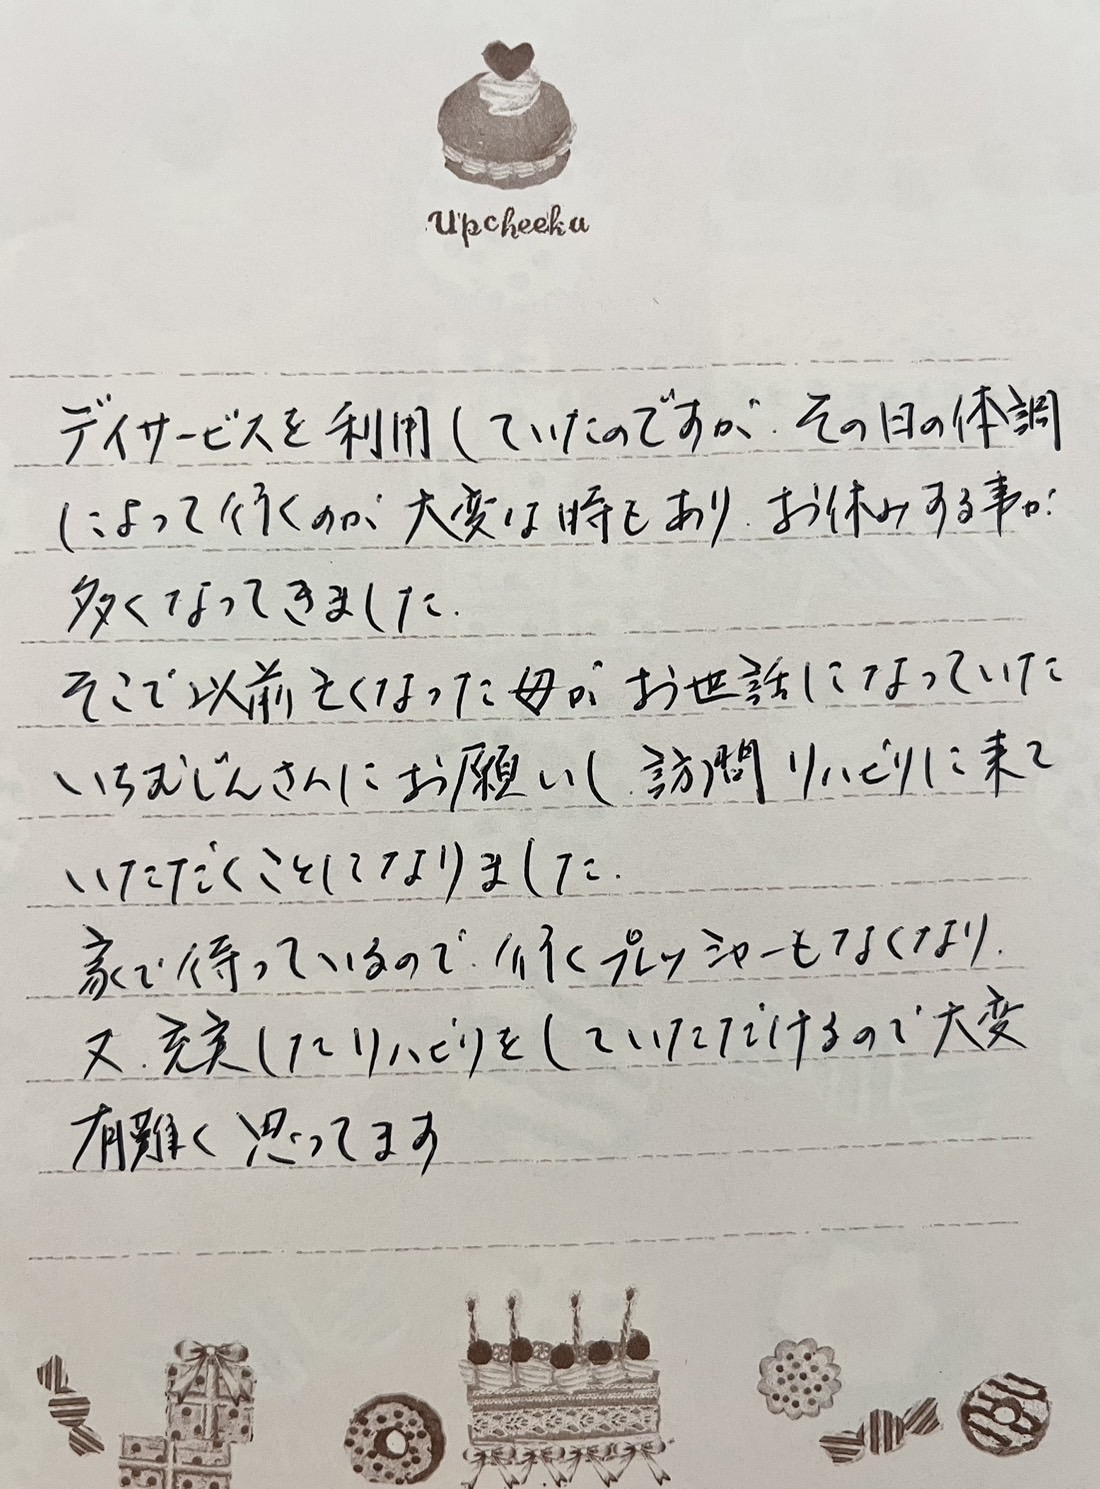 Upcheeka
デイサービスを利用していたのですが、その日の体調
によって行くのが大変な時もあり、お休みする事が
多くなってきました。
そこで以前亡くなった母がお世話になっていた
いちむじんさんにお願いし、訪問リハビリに来て
いただくことになりました。
家で待っているので、行くプレッシャーもなくなり、
又、充実したリハビリをしていただけるので大変
有難く思ってます